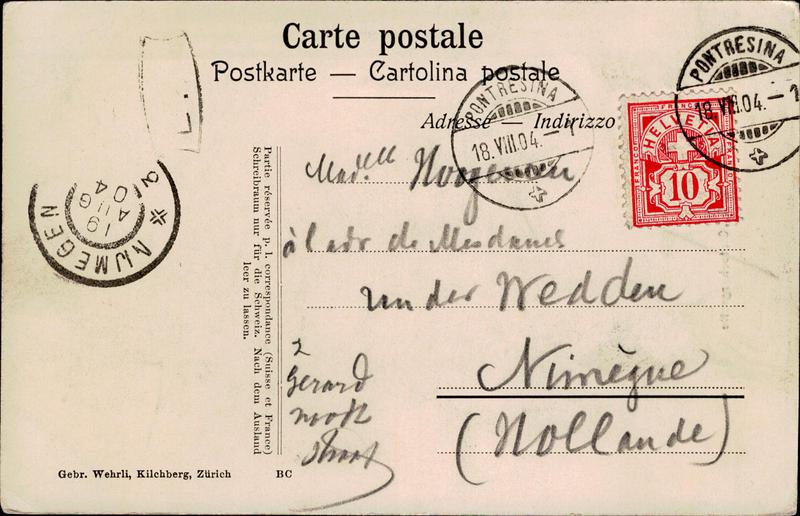 Carte postale
Postkarte — Cartolina postale
Adresse — Indirizzo
PONTRESINA
18.VIII.04.–1
PONTRESINA
18.VIII.04.–1
FRANCO
HELVETIA
10
L.
NIJMEGEN
19 AUG 04
Partie réservée p. l. correspondance (Suisse et France)
Schreibraum nur für die Schweiz. Nach dem Ausland
leer zu lassen.
Mad.elle
à l'adr de Mesdames
van der Wedden
Nimègue
(Hollande)
Gerard
noodt
straat
Gebr. Wehrli, Kilchberg, Zürich
BC